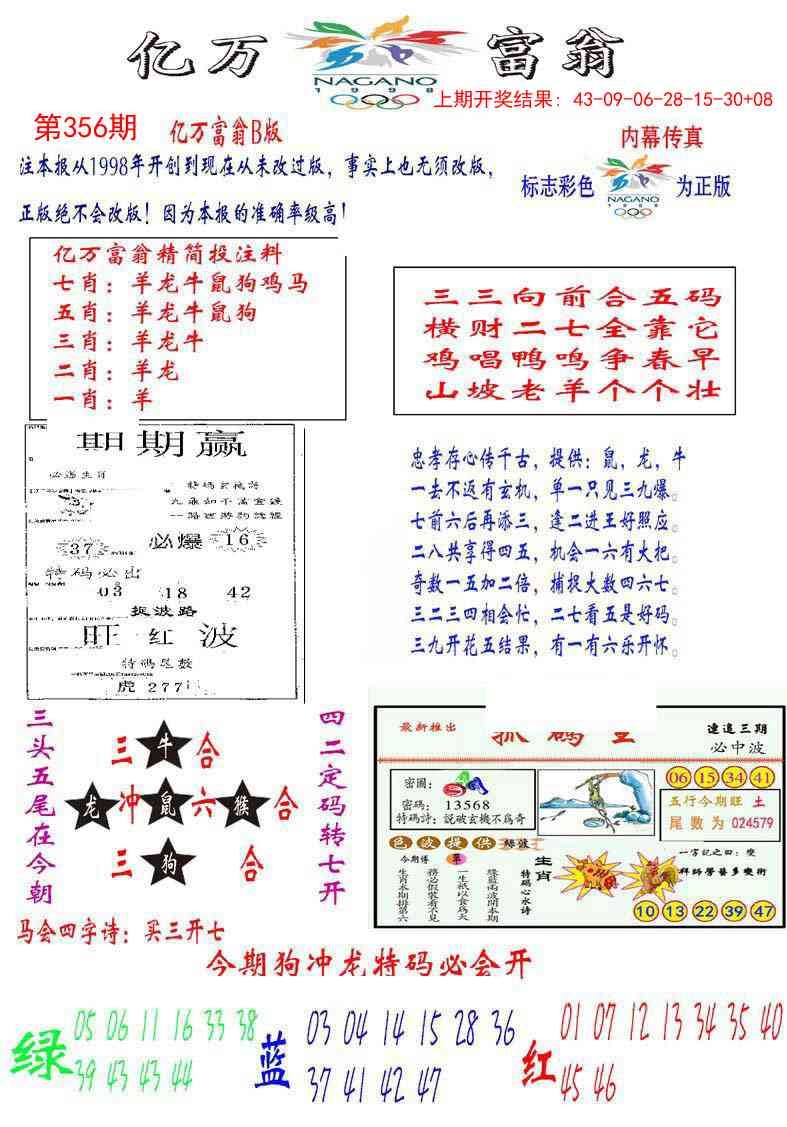 亿万富翁
NAGANO
1998
上期开奖结果：43-09-06-28-15-30+08
第356期
亿万富翁B版
内幕传真
注本报从1998年开创到现在从未改过版，事实上也无须改版，
正版绝不会改版！因为本报的准确率级高！
标志彩色
NAGANO
1998
为正版
亿万富翁精简投注料
七肖：羊龙牛鼠狗鸡马
五肖：羊龙牛鼠狗
三肖：羊龙牛
二肖：羊龙
一肖：羊
三三向前合五码
横财二七全靠它
鸡唱鸭鸣争春早
山坡老羊个个壮
期期赢
必爆
37
16
特码必出
03 18 42
捉波路
旺红波
特码尾数
虎277
忠孝存心传千古，提供：鼠，龙，牛
一去不返有玄机，单一只见三九爆。
七前六后再添三，逢二进王好照应。
二八共享得四五，机会一六有大把。
奇数一五加二倍，捕捉大数四六七。
三二三四相会忙，二七看五是好码。
三九开花五结果，有一有六乐开怀。
三头五尾在今朝
三牛合
龙冲鼠六猴合
三狗合
四二定码转七开
最新推出
連追三期
必中波
06 15 34 41
密圖：
密碼：13568
特碼詩：説破玄機不爲奇
五行今期旺 土
尾数为 024579
色波提供
緑波
今期博 單
生肖
特码心水诗
一字記之曰：變
10 13 22 39 47
马会四字诗：买三开七
今期狗冲龙特码必会开
绿
05 06 11 16 33 38
39 43 43 44
蓝
03 04 14 15 28 36
37 41 42 47
红
01 07 12 13 34 35 40
45 46